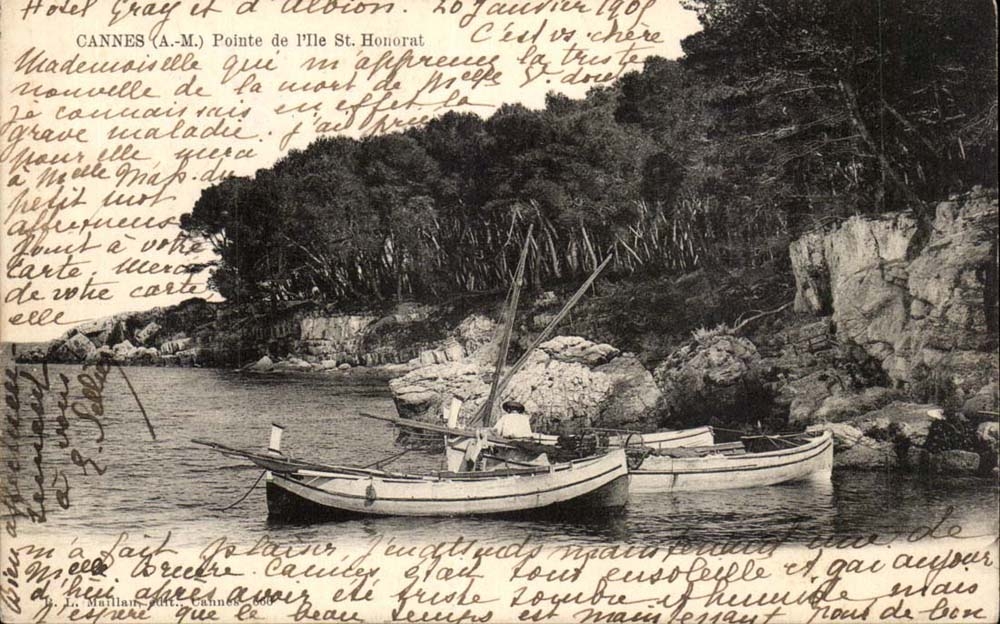 Hotel Gray et d'Albion. 20 Janvier 190
CANNES (A.-M.) Pointe de l'Ile St. Honorat
C'est vs. chère
Mademoiselle qui m'apprenez la triste
nouvelle de la mort de Melle
je connaissais en effet la
grave maladie. j'ai prié
pour elle, merci
à Melle Map. du
petit mot
affectueux
joint à votre
carte. Merci
de votre carte
elle
m'a fait plaisir, j'entends maintenant une de
Melle Cannes est tout ensoleillé et gai aujour
d'hui après avoir été triste sombre et humide mais
j'espère que le beau temps est maintenant pour de bon
bien affectueuse
à vous
E.
E. L. Maillan, édit., Cannes 666